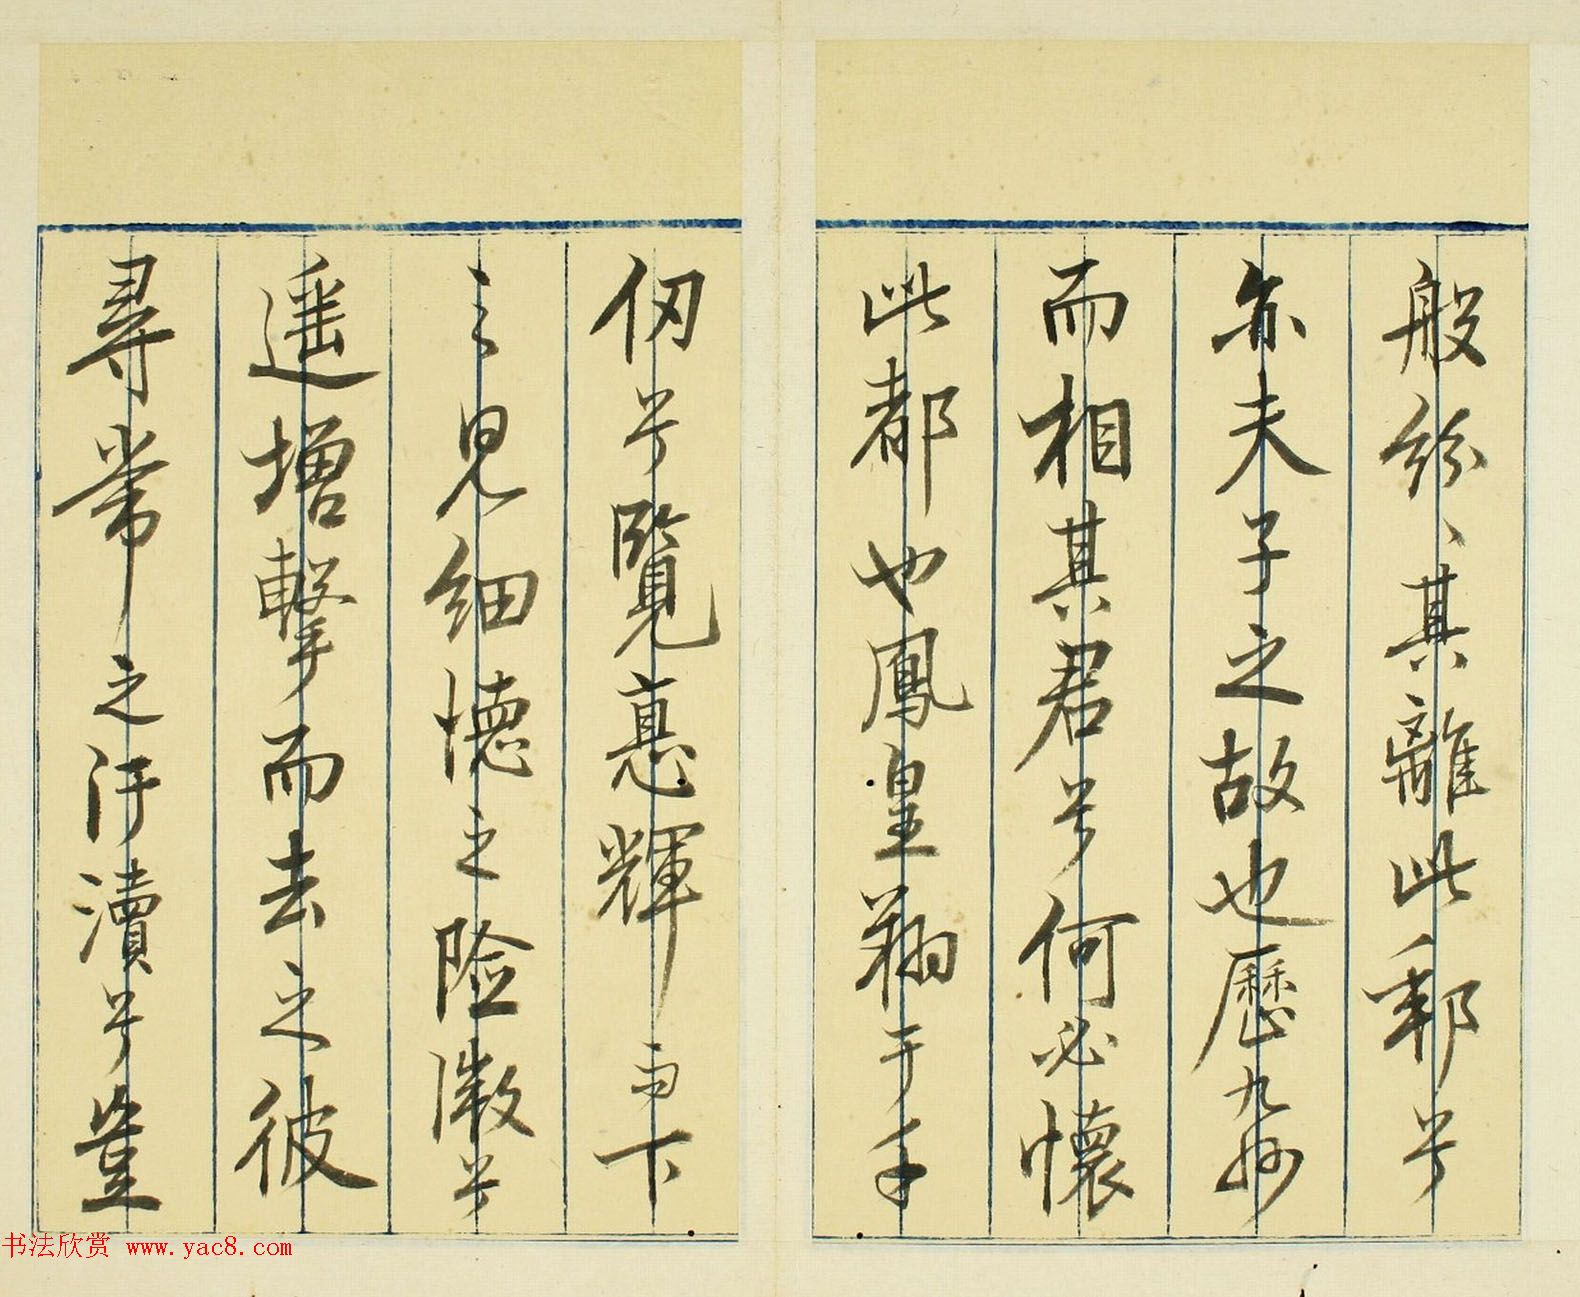 般紛、其離此郵兮
亦夫子之故也歷九州
而相其君兮何必懷
此都也鳳皇翔于千
仞兮覽悳輝而下
之見細德之險徵兮
遥增擊而去之彼
尋常之汙瀆兮豈
书法欣赏 www.yac8.com